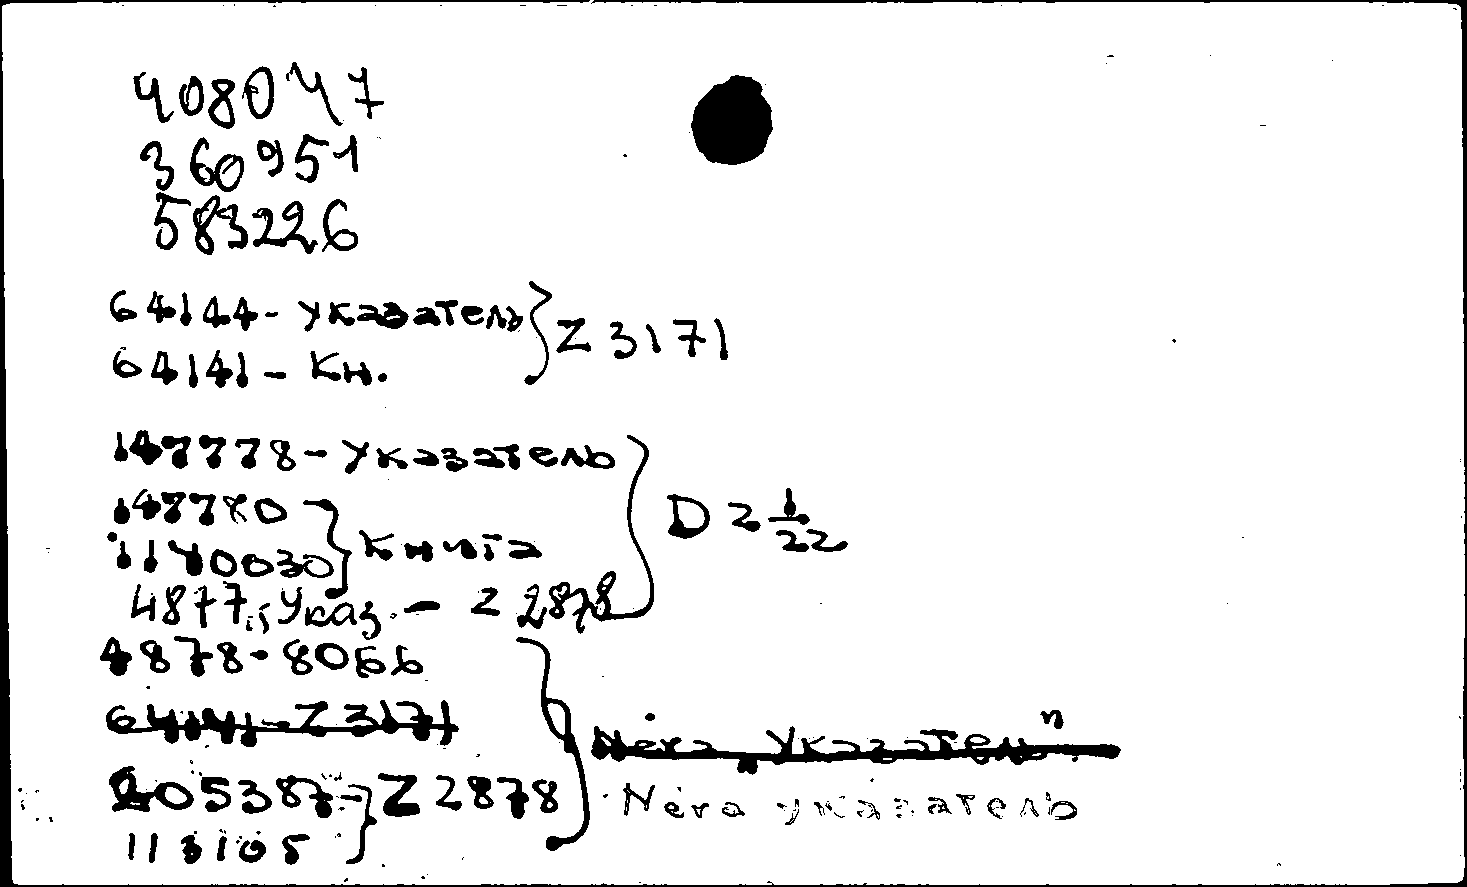 408047
360951
583226
64144 - указатель } Z 3171
64141 - Кн.
147778 - Указатель } D 2 1/22
147780 } Книга
1140030
4877, Указ. - Z 2878
4878 - 8066
64141 - Z 3171
Nėra „Указатель"
205387 - } Z 2878
Nėra указатель
113105